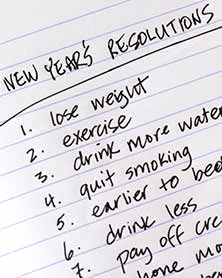 NEW YEAR'S RESOLUTIONS
1. lose weight
2. exercise
3. drink more water
4. quit smoking
5. earlier to bed
6. drink less
7. pay off
home